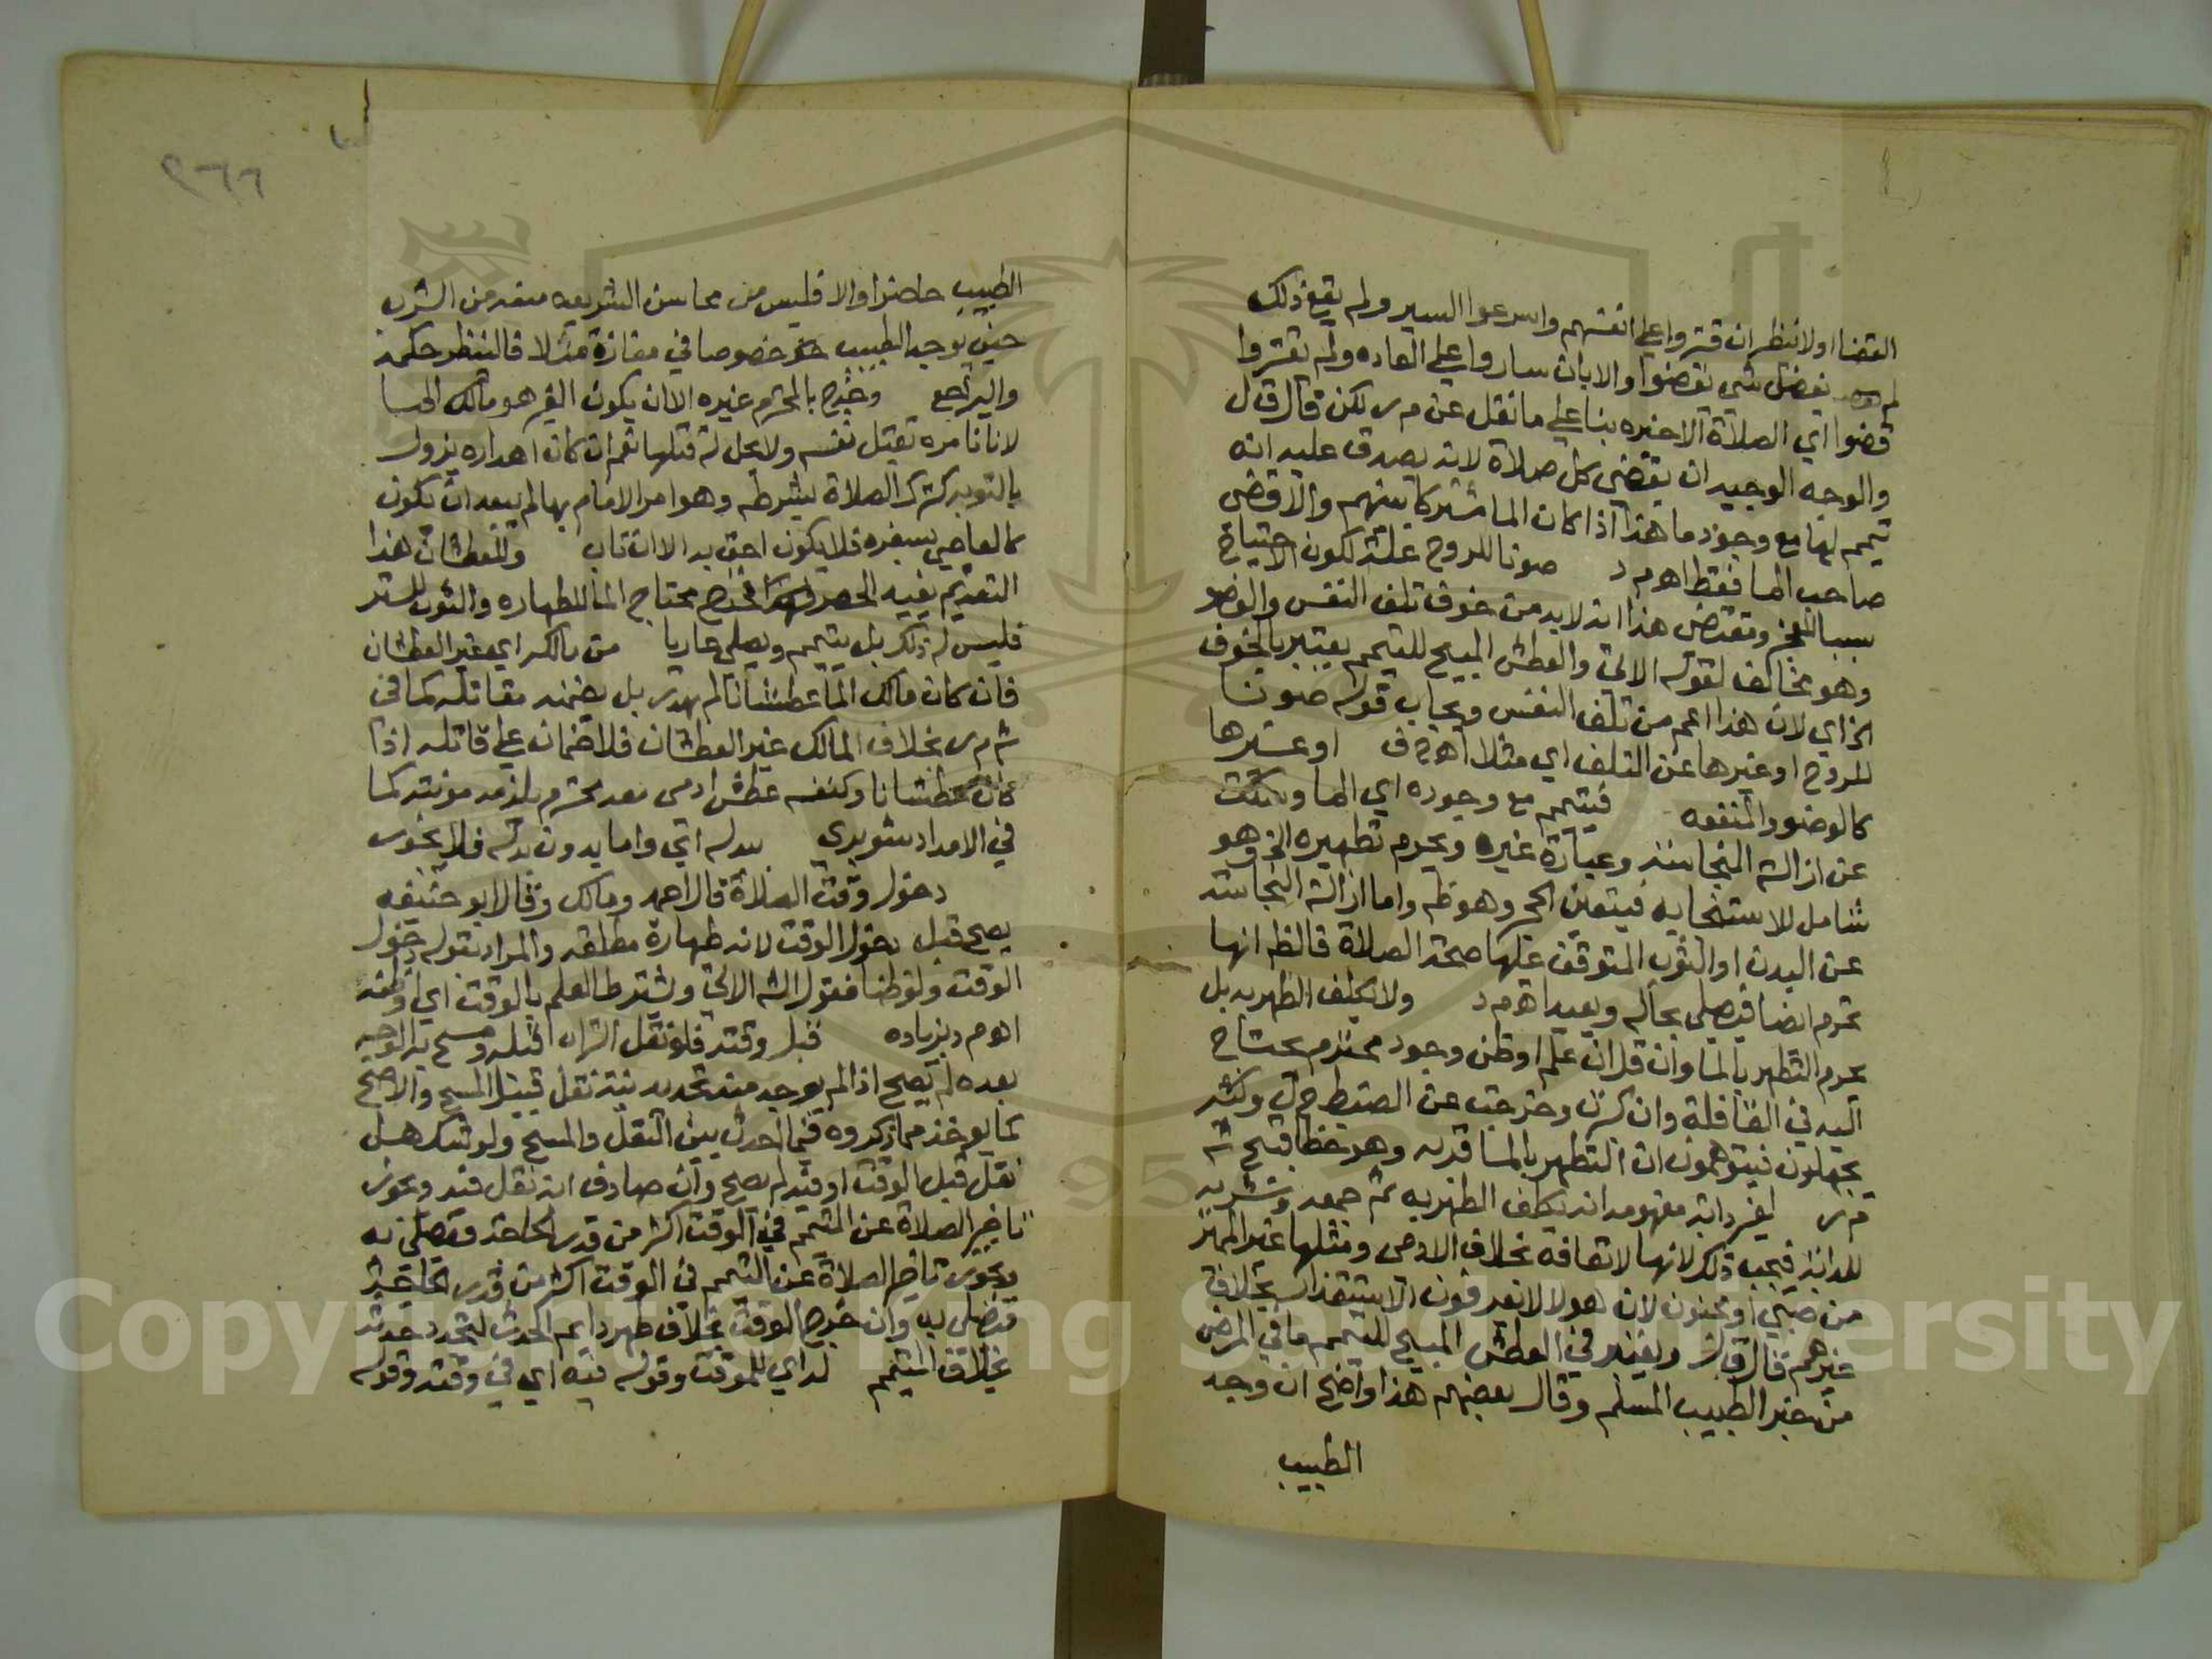 القضا اولا ننظر ان قتروا علي انفسهم واسرعوا السير ولم يقع ذلك
لم نقضى شى نقضوا والابان ساروا على العاده ولم يقتروا
قضوا اي الصلاة الاخيره بنا علي ما نقل عن م ر لكن قال ق ل
والوجه الوجيه ان يقضى كل صلاة لانه يصدق عليه انه
تيمم لها مع وجود ما هذا اذا كان الما مشتركا بينهم والا قضى
صاحب الما فقط اهـ م د صونا للروح علته لكون الاحتياج
سببا للعجز ومقتضى هذا انه لابد من خوف تلف النفس والعضو
وهو مخالف لقوله الاتي والعطش المبيح للتيمم يعتبر بالخوف
الخ اي لان هذا اعم من تلف النفس ويجاب قوله صونا
للروح او غيرها عن التلف اي مثلا اهـ او غيرها
كالوضو والمنفعه فيتيمم مع وجوده اي الما وسكت
عن ازالة النجاسة وعبارة غيره ويحرم تطهيره الخ وهو
شامل للاستنجا به فيتعين الحجر وهو ظ واما ازالة النجاسة
عن البدن او الثوب المتوقف عليها صحة الصلاة فالظ انها
تحرم ايضا فيصلي بحاله ويعيد اهـ م د ولا يكلف الطهر به بل
يحرم التطهر بالما وان قل ان علم او ظن وجود محترم يحتاج
اليه في القافلة وان كبرت وخرجت عن الضبط ح ل وكثير
يجهلون فيتوهمون ان التطهر بالما قربه وهو خطا قبيح ش
م ر لغير دابه مفهومه انه يكلف الطهر به ثم جمعه وشربه
للدابة فيجب ذلك لانها لا تعافه بخلاف الادمى ومثلها غير المميز
من صبي او مجنون لان هولا لا يعرفون الاستقذار بخلاف
غيرهم قال ق ل ويعتبر في العطش المبيح للتيمم ما في المرض
من خبر الطبيب المسلم وقال بعضهم هذا واضح ان وجد
الطبيب
الطبيب حاضرا والا فليس من محاسن الشريعه منعه من الشرب
حتى يوجد الطبيب خصوصا في مفازة مثلا فالينظر حكمه
واليراجع وخرج بالمحترم غيره الا ان يكون الغير هو مالك الما
لانا نامره بقتل نفسه ولا يحل له قتلها نعم ان كان اهداره يزول
بالتوبه كترك الصلاة بشرطه وهو امر الامام بها لم يبعد ان يكون
كالعاصي بسفره فلا يكون احق به الا ان تاب وللعطشان هذا
التقديم يفيد الحصر فخرج محتاج الما للطهاره والثوب للستر
فليس له ذلك بل يتيمم ويصلي عاريا من مالكه اي غير العطشان
فان كان مالك الما عطشانا لم يهدر بل يضمنه مقاتله كما في
ش م ر بخلاف المالك غير العطشان فلا ضمان علي قاتله اذا
كان عطشانا وكنفسه عطش ادمى معه محترم يلزمه مؤنته كما
في الامداد شوبري ببدله اي واما بدون بدله فلا يجوز
دخول وقت الصلاة قال احمد ومالك وقال ابو حنيفه
يصح قبل دخول الوقت لانه طهارة مطلقه والمراد بقوله دخول
الوقت ولو ظنا فقول الش الاتي ويشترط العلم بالوقت اي او ظنه
اهـ م د بزياده قبل وقته فلو نقل التراب قبله ومسح به الوجه
بعده لم يصح اذا لم يوجد منه تجديد نية نقل قبيل المسح والا صح
كما يوخذ مما ذكروه فيما الحدث بين النقل والمسح ولو شك هل
نقل قبل الوقت او فيه لم يصح وان صادف انه نقل فيه ويجوز
تاخير الصلاة عن التيمم في الوقت اكثر من قدر الحاجة فتصلى به
ويجوز تاخير الصلاة عن التيمم في الوقت اكثر من قدر الحاجة
فتصلى به وان خرج الوقت بخلاف طهر دايم الحدث لتجدد حدثه
بخلاف المتيمم له اي للموقت وقوله فيه اي في وقته وقوله